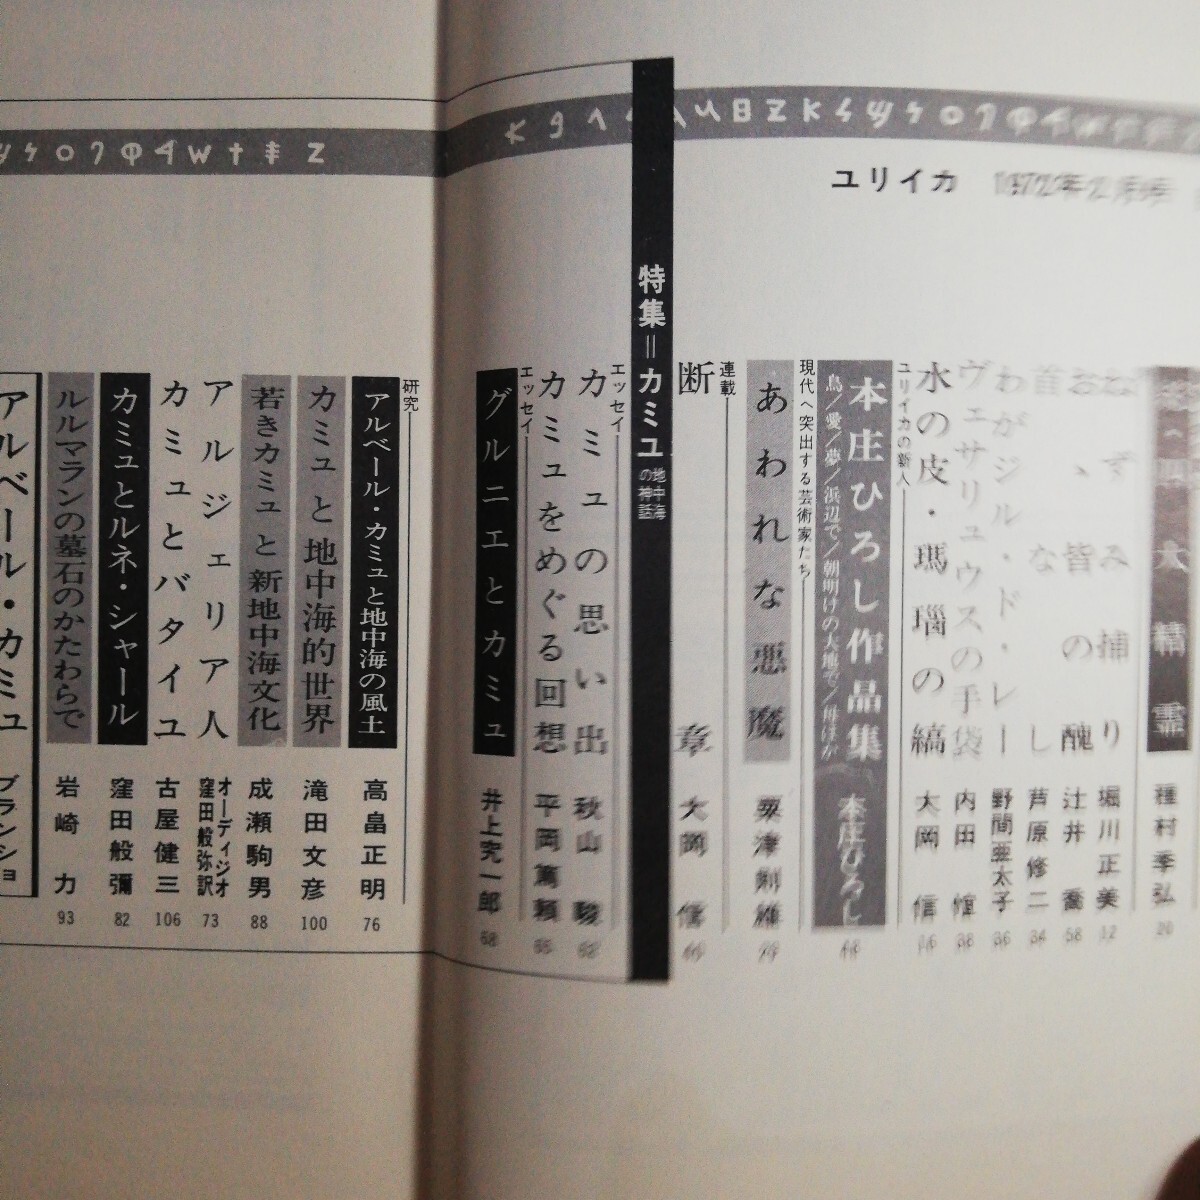 ユリイカ 1972年2月号
大精霊
種村季弘 20
ねずみ捕り 堀川正美 12
お、皆の醜 辻井喬 58
首なし 芦原修二 34
わがジル・ド・レー 野間亜太子 36
ヴェサリュウスの手袋 内田 38
ユリイカの新人
水の皮・瑪瑙の縞 大岡信 16
本庄ひろし作品集 本庄ひろし
鳥／愛／夢／浜辺で／朝明けの大地で／母ほか
現代へ突出する芸術家たち
あわれな悪魔 粟津則雄
連載
断章 大岡信
特集＝カミュ 地中海の神話
エッセイ
カミュの思い出 秋山駿 62
カミュをめぐる回想 平岡篤頼 65
エッセイ
グルニエとカミュ 井上究一郎 68
研究
アルベール・カミュと地中海の風土 高畠正明 76
カミュと地中海的世界 滝田文彦 100
若きカミュと新地中海文化 成瀬駒男 88
アルジェリア人 オーディジオ 窪田般弥訳 73
カミュとバタイユ 古屋健三 106
カミュとルネ・シャール 窪田般彌 82
ルルマランの墓石のかたわらで 岩崎力 93
アルベール・カミュ ブランショ